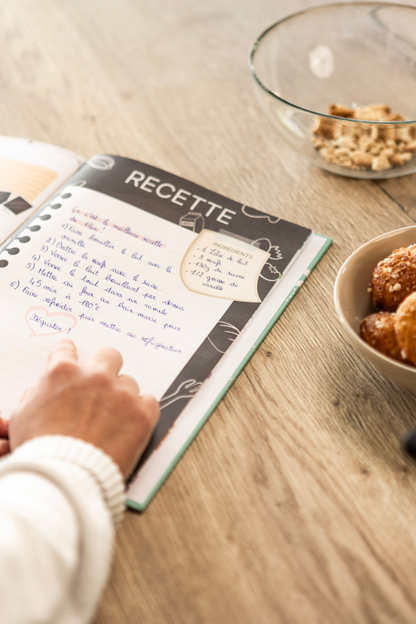 RECETTE
Ça c'est la meilleure recette
de flan!
1) Faire bouillir le lait avec la
vanille
2) Battre le oeuf avec le sucre
3) Verser le lait bouillant par dessus
4) Verser le tout dans un moule
5) Mettre au four au bain marie pour
45 min à 180°C
6) Faire refroidir puis mettre au réfrigérateur
Déguster!
INGRÉDIENTS
1 litre de lait
oeuf
de sucre
1/2 gousse de
vanille